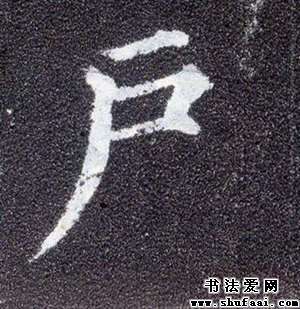 戶
书法爱网
www.shufaai.com